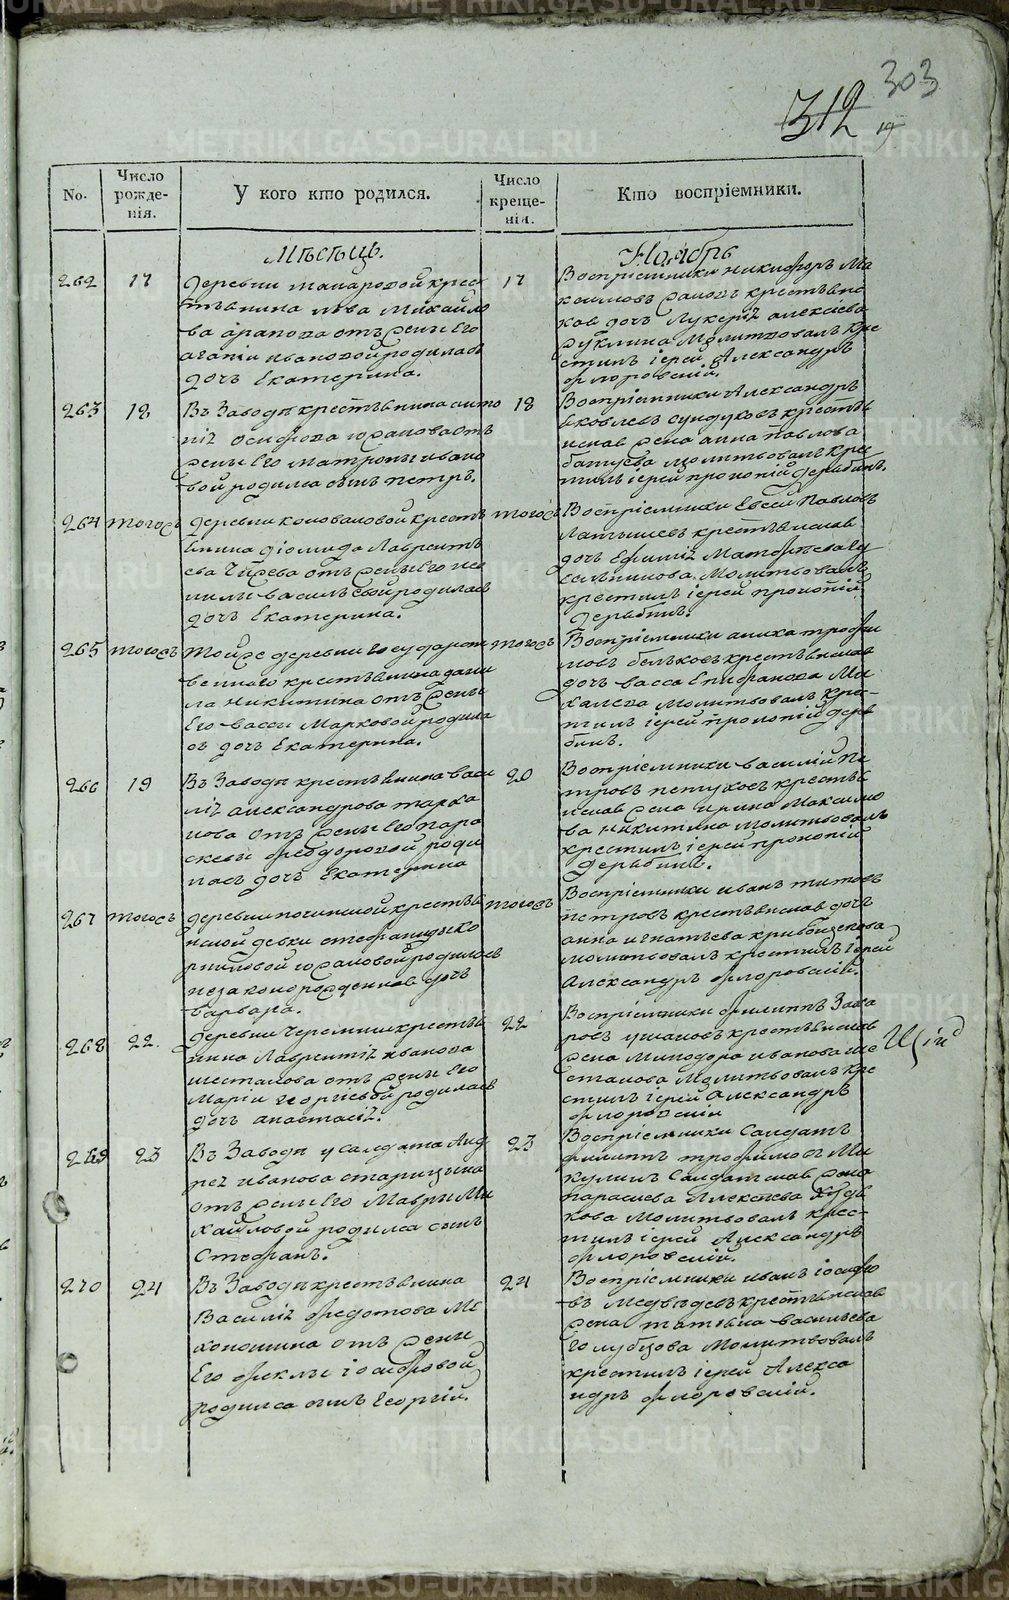 303
312
19
No.
Число рожде-нія.
У кого кто родился.
Число креще-нія.
Кто воспріемники.
Мѣсяцъ.
Ноябрь
262 17
деревни макаровой крест
ьянина Ива Михайло
ва Арапова отъ жены Его
агапіи ивановой родилась
дочь Екатерина.
17
Воспріемники никифоръ Ма
ксимовъ крестьянс
кая дочь Лукерія алексіева
Молитвовалъ кре
стилъ іерей Александръ
флоровскій.
263 18
Въ Заводѣ крестьянина анто
нія осифова юданова отъ
жены Его матроны ивано
вой родился сынъ петръ.
18
Воспріемники Александръ
яковлевъ сундуковъ крестья
нская жена анна Павлова
батуева молитвовалъ крес
тилъ іерей прокопій дерябинъ.
264 тогожъ
деревни коноваловой кресть
янина діомида Лавренть
ева Чижева отъ жены Его не
нилы васильевой родилась
дочь Екатерина.
тогожъ
Воспріемники Евсей Павловъ
Латышевъ крестьянская
дочь Ефимія Матфѣева
Молитвовалъ
крестилъ іерей прокопій
Дерябинъ.
265 тогожъ
Тойже деревни государст
веннаго крестьянина дани
ла Никитина отъ жены
Его вассы Марковой родила
сь дочь Екатерина.
тогожъ
Воспріемники аника трофи
мовъ крестьянская
дочь васса Епифанова Ми
халева Молитвовалъ крес-
тилъ іерей прокопій деря
бинъ.
266 19
Въ Заводѣ крестьянина васи
лія александрова тарка
нова отъ жены Его пара
скевы феодоровой роди
лась дочь Екатерина
20
Воспріемники василій Пе
тровъ петуховъ крестья
нская жена ирина Максимо
ва Никитина Молитвовалъ
крестилъ іерей прокопій
Дерябинъ.
267 тогожъ
деревни починской крестья
нской девки стефаниды ко
рниловой юдановой родилась
незаконорожденная дочь
варвара.
тогожъ
Воспріемники иванъ титовъ
петровъ крестьянская дочь
анна игнатьева кривощокова
молитвовалъ крестилъ іерей
Александръ флоровскій.
268 22.
деревни Черемши крестья
нина Лаврентія иванова
шестакова отъ жены Его
Маріи георгіевой родилась
дочь анастасія.
22
Воспріемники филиппъ Заха
ровъ ушаковъ крестьянская
жена Минодора иванова ше
стакова Молитвовалъ кре
стилъ іерей Александръ
флоровскій
269 23
Въ Заводѣ у салдата Анд
рея иванова старицына
отъ жены Его Мавры Ми
хайловой родился сынъ
Стефанъ.
23
Воспріемники Салдатъ
филиппъ трофимовъ Ми
кулинъ Салдатская жена
параскева Алексѣева Худя
кова Молитвовалъ крес-
тилъ іерей Александръ
флоровскій.
270 24
Въ Заводѣ крестьянина
Василія федотова Ме
коношина отъ жены
Его феклы іосифовой
родился сынъ Георгій.
24
Воспріемники иванъ іосифо
въ Медвѣдевъ крестьянская
жена татьяна васильева
голубцова Молитвовалъ
крестилъ іерей Алекса
ндръ флоровскій.
METRIKI.GASO-URAL.RU